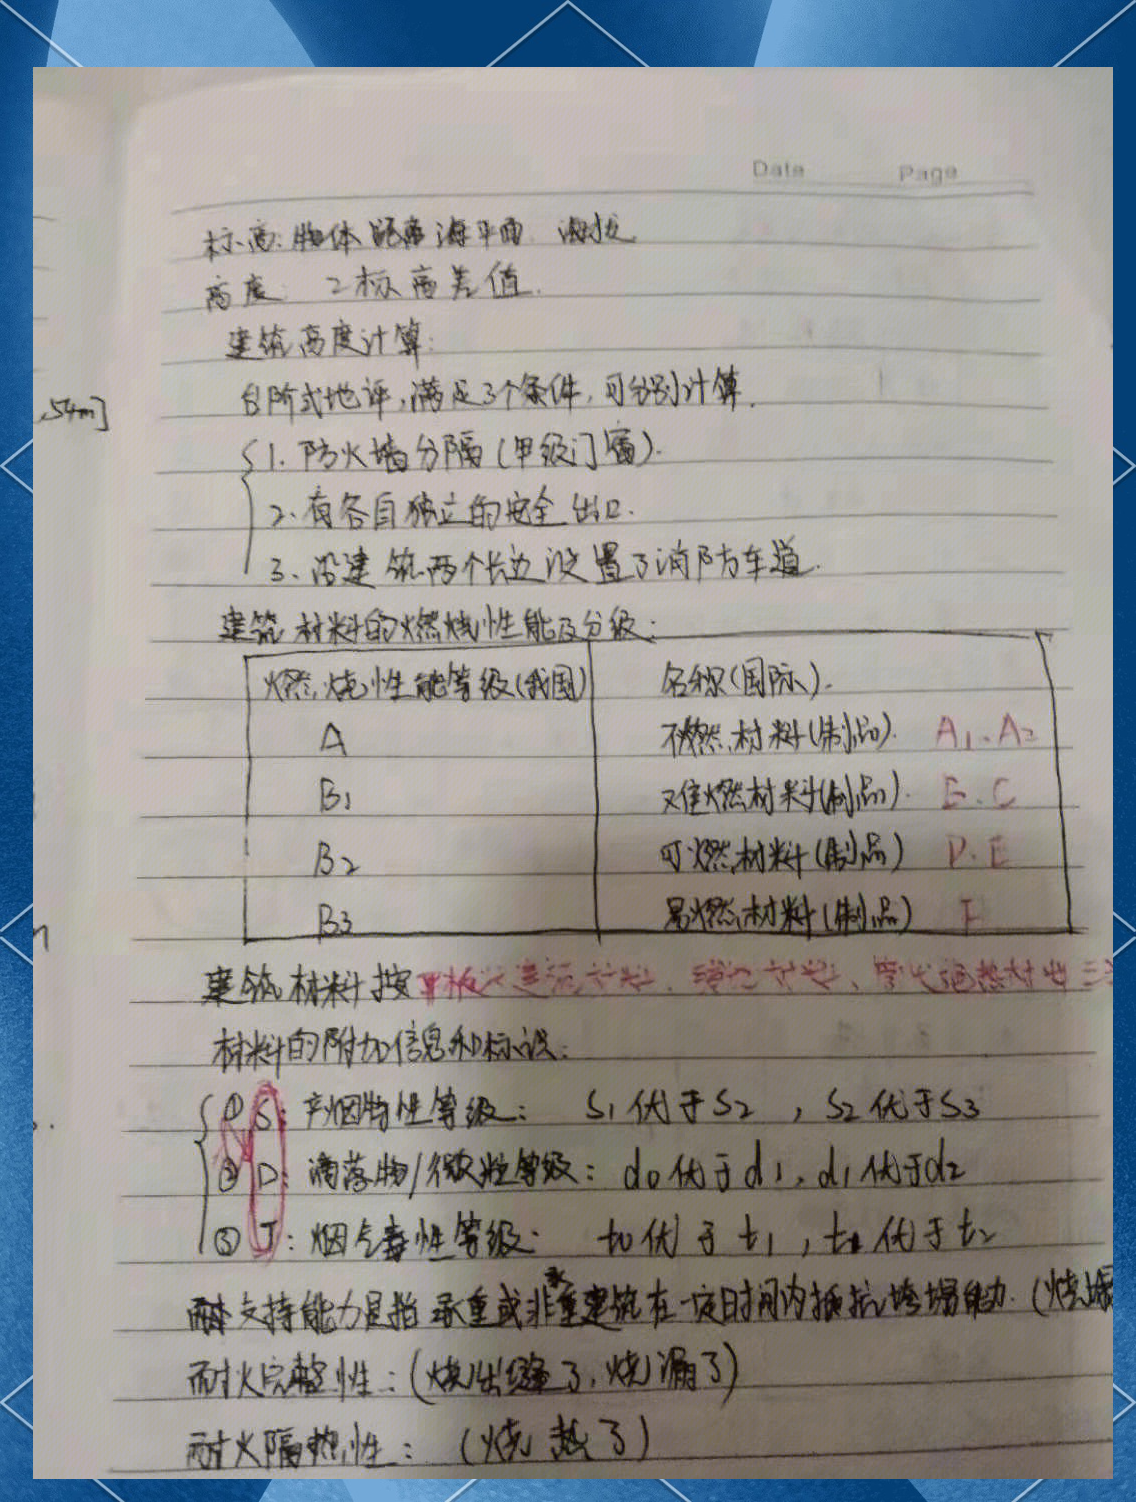 Date Page
标高:物体距离海平面 海拔
高度: 2标高差值.
建筑高度计算:
台阶式地评,满足3个条件,可分别计算.
.54m]
1. 防火墙分隔(甲级门窗).
2. 有各自独立的安全出口.
3. 沿建筑两个长边设置了消防车道.
建筑材料的燃烧性能及分级:
燃烧性能等级(我国) 名称(国际).
A 不燃材料(制品). A1、A2
B1 难燃材料(制品). C
B2 可燃材料(制品) D.E
B3 易燃材料(制品) F
建筑材料按平板状建筑材料、铺地材料、管状绝热材料三
材料的附加信息和标识:
① S: 产烟特性等级: S1优于S2 , S2优于S3
② D: 滴落物/微粒等级: d0优于d1, d1优于d2
③ T: 烟气毒性等级: t0优于t1, t1优于t2
耐支持能力是指承重或非承重建筑在一定时间内抵抗垮塌能力. (烧塌
耐火完整性: (烧出缝了,烧漏了)
耐火隔热性: (烧热了)